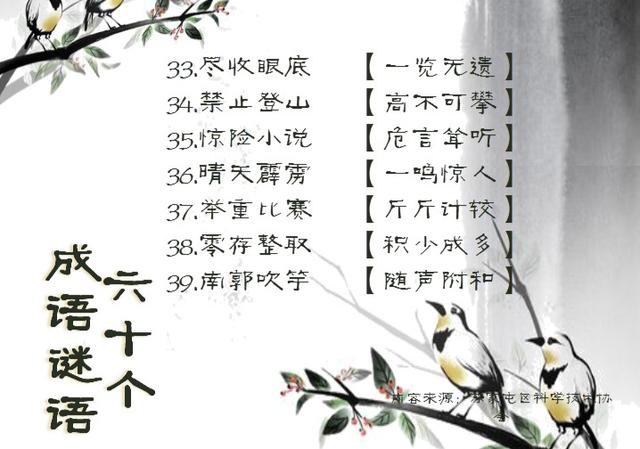 33.尽收眼底 【一览无遗】
34.禁止登山 【高不可攀】
35.惊险小说 【危言耸听】
36.晴天霹雳 【一鸣惊人】
37.举重比赛 【斤斤计较】
38.零存整取 【积少成多】
39.南郭吹竽 【随声附和】
六十个
成语谜语
内容来源：苏家屯区科学技术协
会